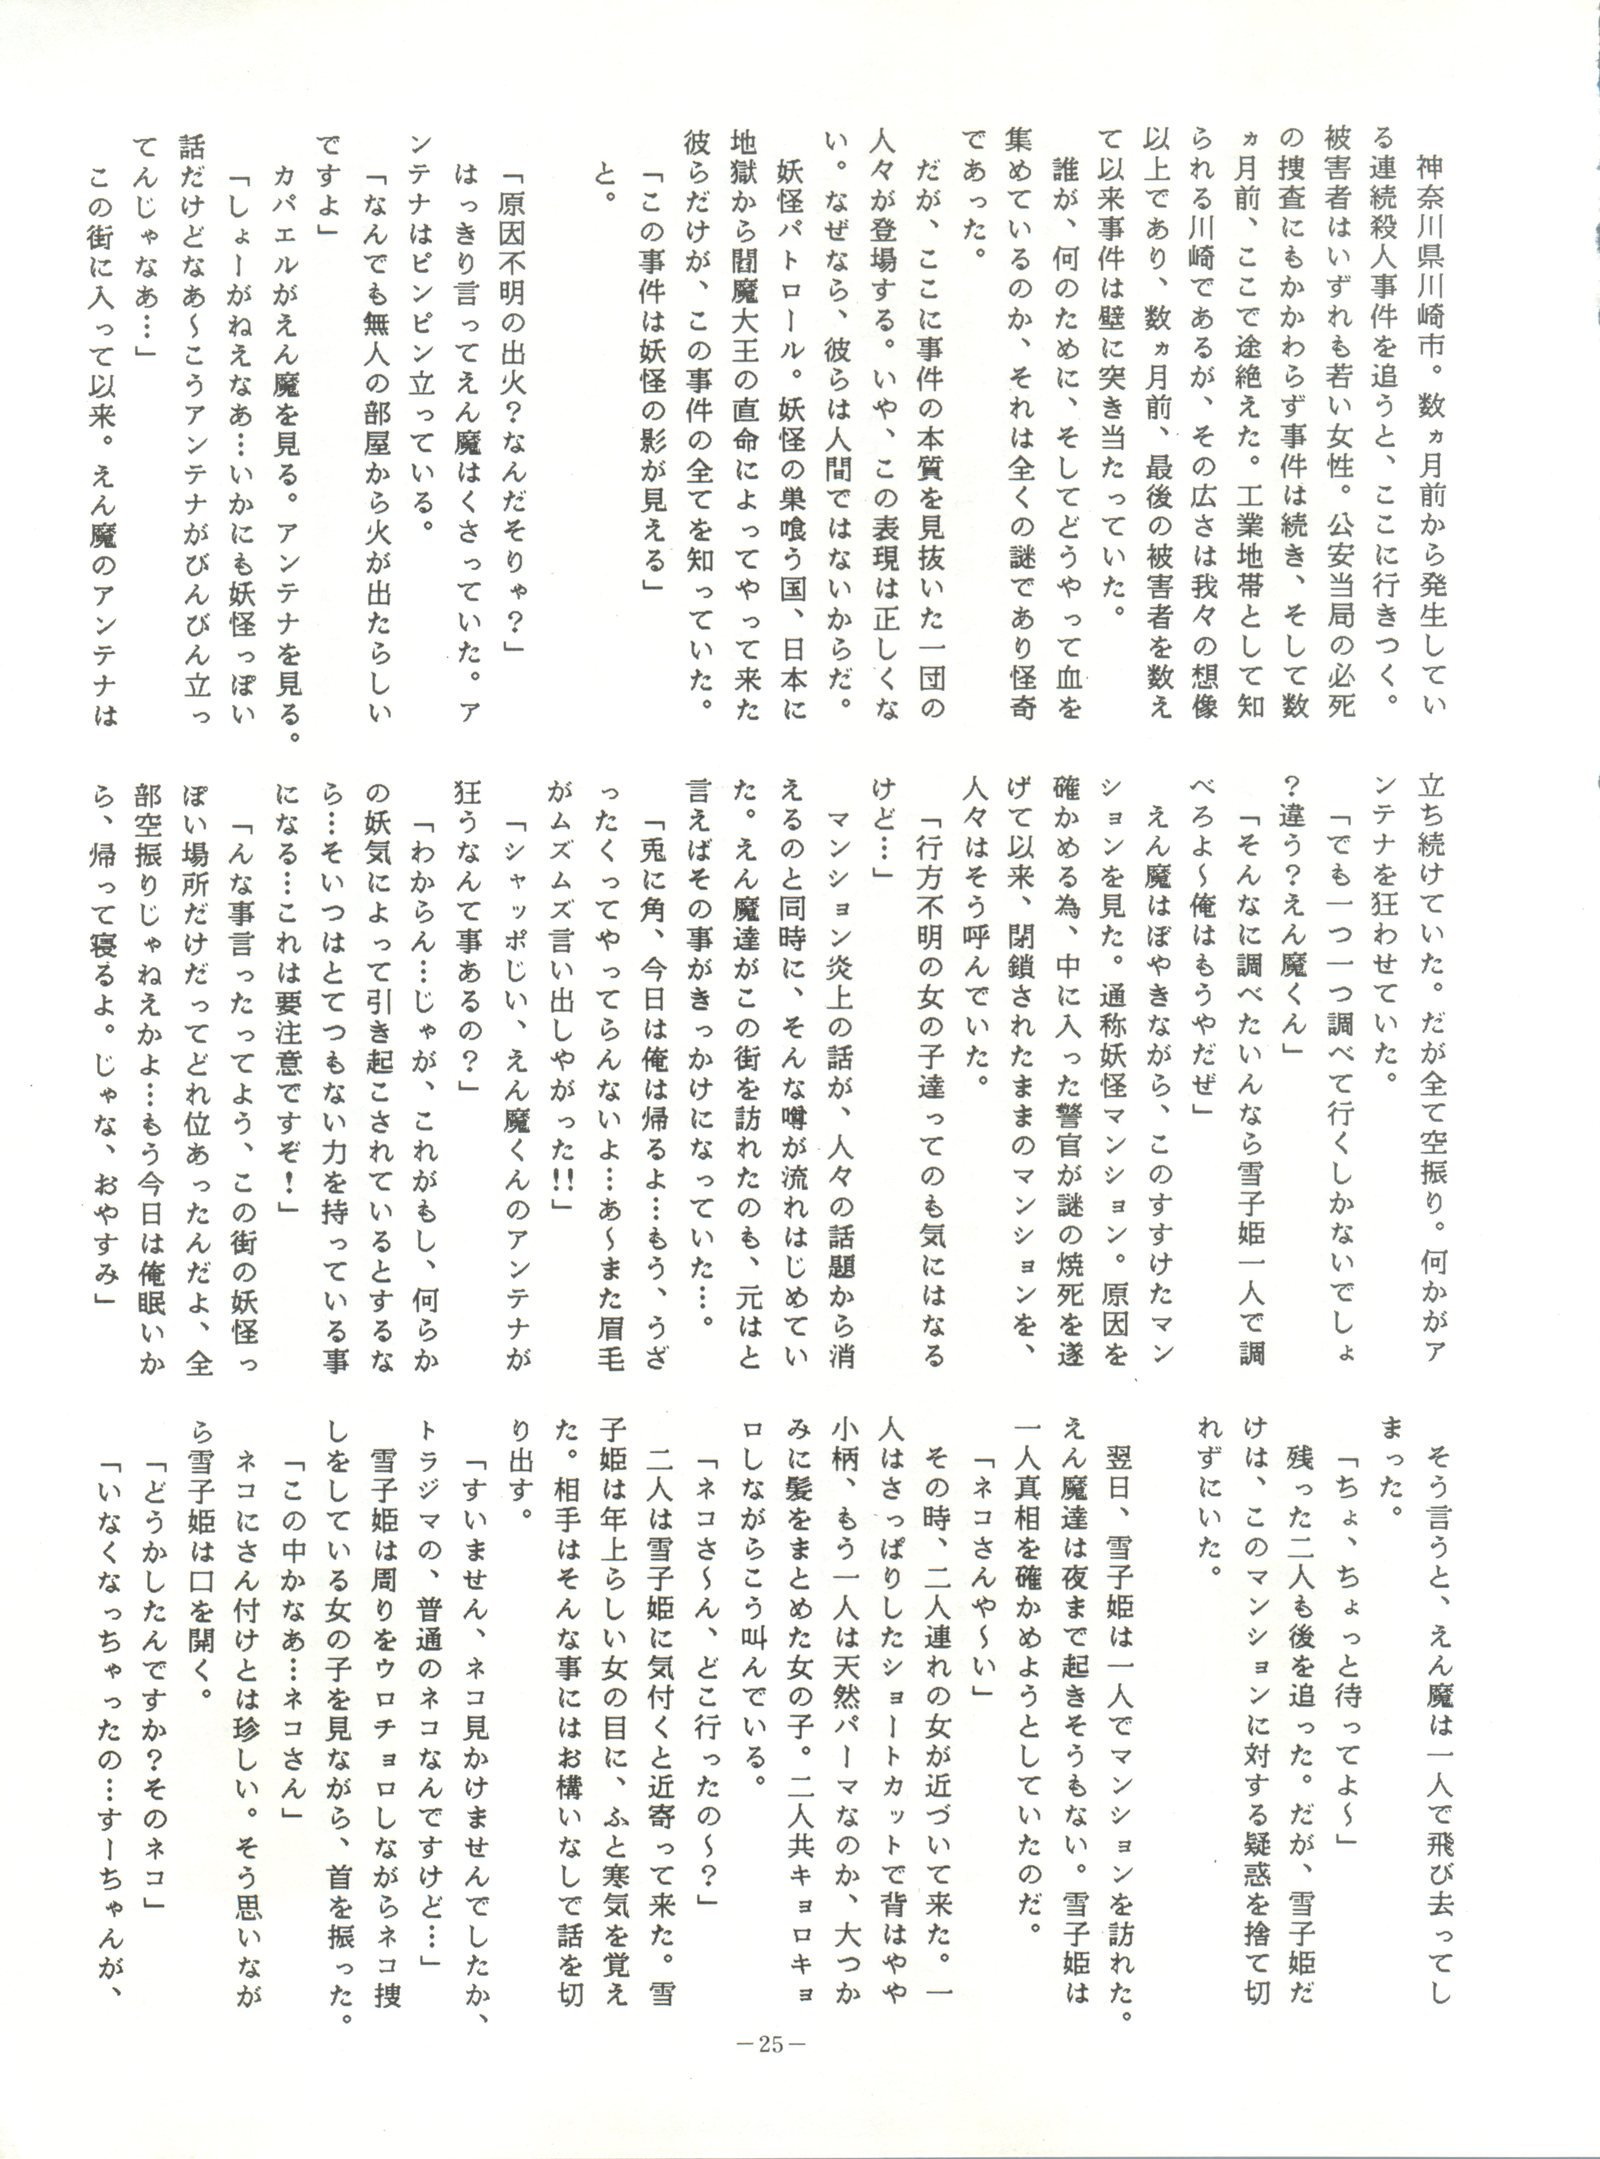 神奈川県川崎市。数ヵ月前から発生してい
る連続殺人事件を追うと、ここに行きつく。
被害者はいずれも若い女性。公安当局の必死
の捜査にもかかわらず事件は続き、そして数
ヵ月前、ここで途絶えた。工業地帯として知
られる川崎であるが、その広さは我々の想像
以上であり、数ヵ月前、最後の被害者を数え
て以来事件は壁に突き当たっていた。
誰が、何のために、そしてどうやって血を
集めているのか、それは全くの謎であり怪奇
であった。
だが、ここに事件の本質を見抜いた一団の
人々が登場する。いや、この表現は正しくな
い。なぜなら、彼らは人間ではないからだ。
妖怪パトロール。妖怪の巣喰う国、日本に
地獄から閻魔大王の直命によってやって来た
彼らだけが、この事件の全てを知っていた。
「この事件は妖怪の影が見える」
と。
「原因不明の出火？なんだそりゃ？」
はっきり言ってえん魔はくさっていた。ア
ンテナはピンピン立っている。
「なんでも無人の部屋から火が出たらしい
ですよ」
カパエルがえん魔を見る。アンテナを見る。
「しょーがねえなあ…いかにも妖怪っぽい
話だけどなあ～こうアンテナがびんびん立っ
てんじゃなあ…」
この街に入って以来。えん魔のアンテナは
立ち続けていた。だが全て空振り。何かがア
ンテナを狂わせていた。
「でも一つ一つ調べて行くしかないでしょ
？違う？えん魔くん」
「そんなに調べたいんなら雪子姫一人で調
べろよ～俺はもうやだぜ」
えん魔はぼやきながら、このすすけたマン
ションを見た。通称妖怪マンション。原因を
確かめる為、中に入った警官が謎の焼死を遂
げて以来、閉鎖されたままのマンションを、
人々はそう呼んでいた。
「行方不明の女の子達ってのも気にはなる
けど…」
マンション炎上の話が、人々の話題から消
えるのと同時に、そんな噂が流れはじめてい
た。えん魔達がこの街を訪れたのも、元はと
言えばその事がきっかけになっていた…。
「兎に角、今日は俺は帰るよ…もう、うざ
ったくってやってらんないよ…あ～また眉毛
がムズムズ言い出しやがった!!」
「シャッポじい、えん魔くんのアンテナが
狂うなんて事あるの？」
「わからん…じゃが、これがもし、何らか
の妖気によって引き起こされているとするな
ら…そいつはとてつもない力を持っている事
になる…これは要注意ですぞ！」
「んな事言ったってよう、この街の妖怪っ
ぽい場所だけだってどれ位あったんだよ、全
部空振りじゃねえかよ…もう今日は俺眠いか
ら、帰って寝るよ。じゃな、おやすみ」
そう言うと、えん魔は一人で飛び去ってし
まった。
「ちょ、ちょっと待ってよ～」
残った二人も後を追った。だが、雪子姫だ
けは、このマンションに対する疑惑を捨て切
れずにいた。
翌日、雪子姫は一人でマンションを訪れた。
えん魔達は夜まで起きそうもない。雪子姫は
一人真相を確かめようとしていたのだ。
「ネコさんや～い」
その時、二人連れの女が近づいて来た。一
人はさっぱりしたショートカットで背はやや
小柄、もう一人は天然パーマなのか、大つか
みに髪をまとめた女の子。二人共キョロキョ
ロしながらこう叫んでいる。
「ネコさ～ん、どこ行ったの～？」
二人は雪子姫に気付くと近寄って来た。雪
子姫は年上らしい女の目に、ふと寒気を覚え
た。相手はそんな事にはお構いなしで話を切
り出す。
「すいません、ネコ見かけませんでしたか、
トラジマの、普通のネコなんですけど…」
雪子姫は周りをウロチョロしながらネコ捜
しをしている女の子を見ながら、首を振った。
「この中かなあ…ネコさん」
ネコにさん付けとは珍しい。そう思いなが
ら雪子姫は口を開く。
「どうかしたんですか？そのネコ」
「いなくなっちゃったの…すーちゃんが、
－25－